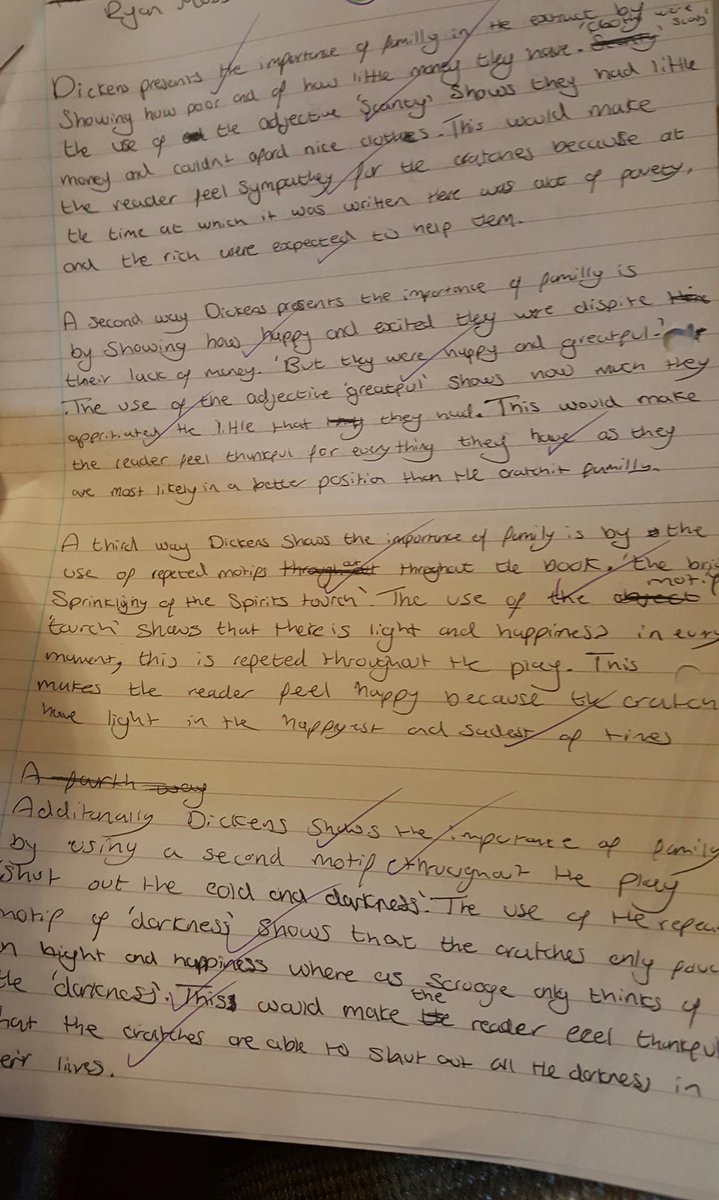 Ryan
Dickens presents the importance of familly in the extract by
Showing how poor and of how little money they have. 'cloths were scanty'
the use of the adjective 'scanty' shows they had little
money and couldnt aford nice clothes. This would make
the reader feel sympathey for the cratches because at
the time at which it was written there was alot of povety,
and the rich were expected to help them.
A second way Dickens presents the importance of familly is
by Showing how happy and exited they were dispite
their lack of money. 'But they were happy and greatful.'
.The use of the adjective 'greatful' shows how much they
appritiated the little that they had. This would make
the reader feel thankful for everything they have as they
are most likely in a better position than the cratchit familly.
A third way Dickens shows the importance of family is by the
use of repeted motifs throghout the book. 'the bri
Sprinkligny of the Spirits tourch'. The use of the motif
'tourch' shows that there is light and happiness in every
moment, this is repeted throughout the play. This
makes the reader feel happy because the cratch
have light in the happyest and sadest of times
A fourth way
Additenally Dickens shows the importance of family
by using a second motif throughout the play
'Shut out the cold and darkness'. The use of the repeat
motif of 'darkness' shows that the cratches only
n bright and happiness where as scrooge only thinks of
the 'darkness'. This would make the reader eeel thankful
hat the cratches are able to shut out all the darkness in
eir lives.